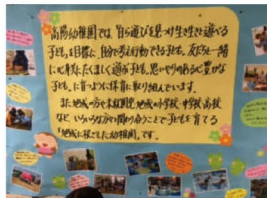 高陽幼稚園では、"自ら遊びを見つけ生き生きと遊べる
子ども"を目標に、自分で考え行動できる子ども、友だちと一緒
に心身ともにたくましく遊ぶ子ども、思いやりのある心豊かな
子ども、に育つように保育に取り組んでいます。
また地域の方や未就園児、地域の小学校・中学校・高校
など いろいろな方と関わり合うことで子どもを育てる
「地域に根ざした幼稚園」です。